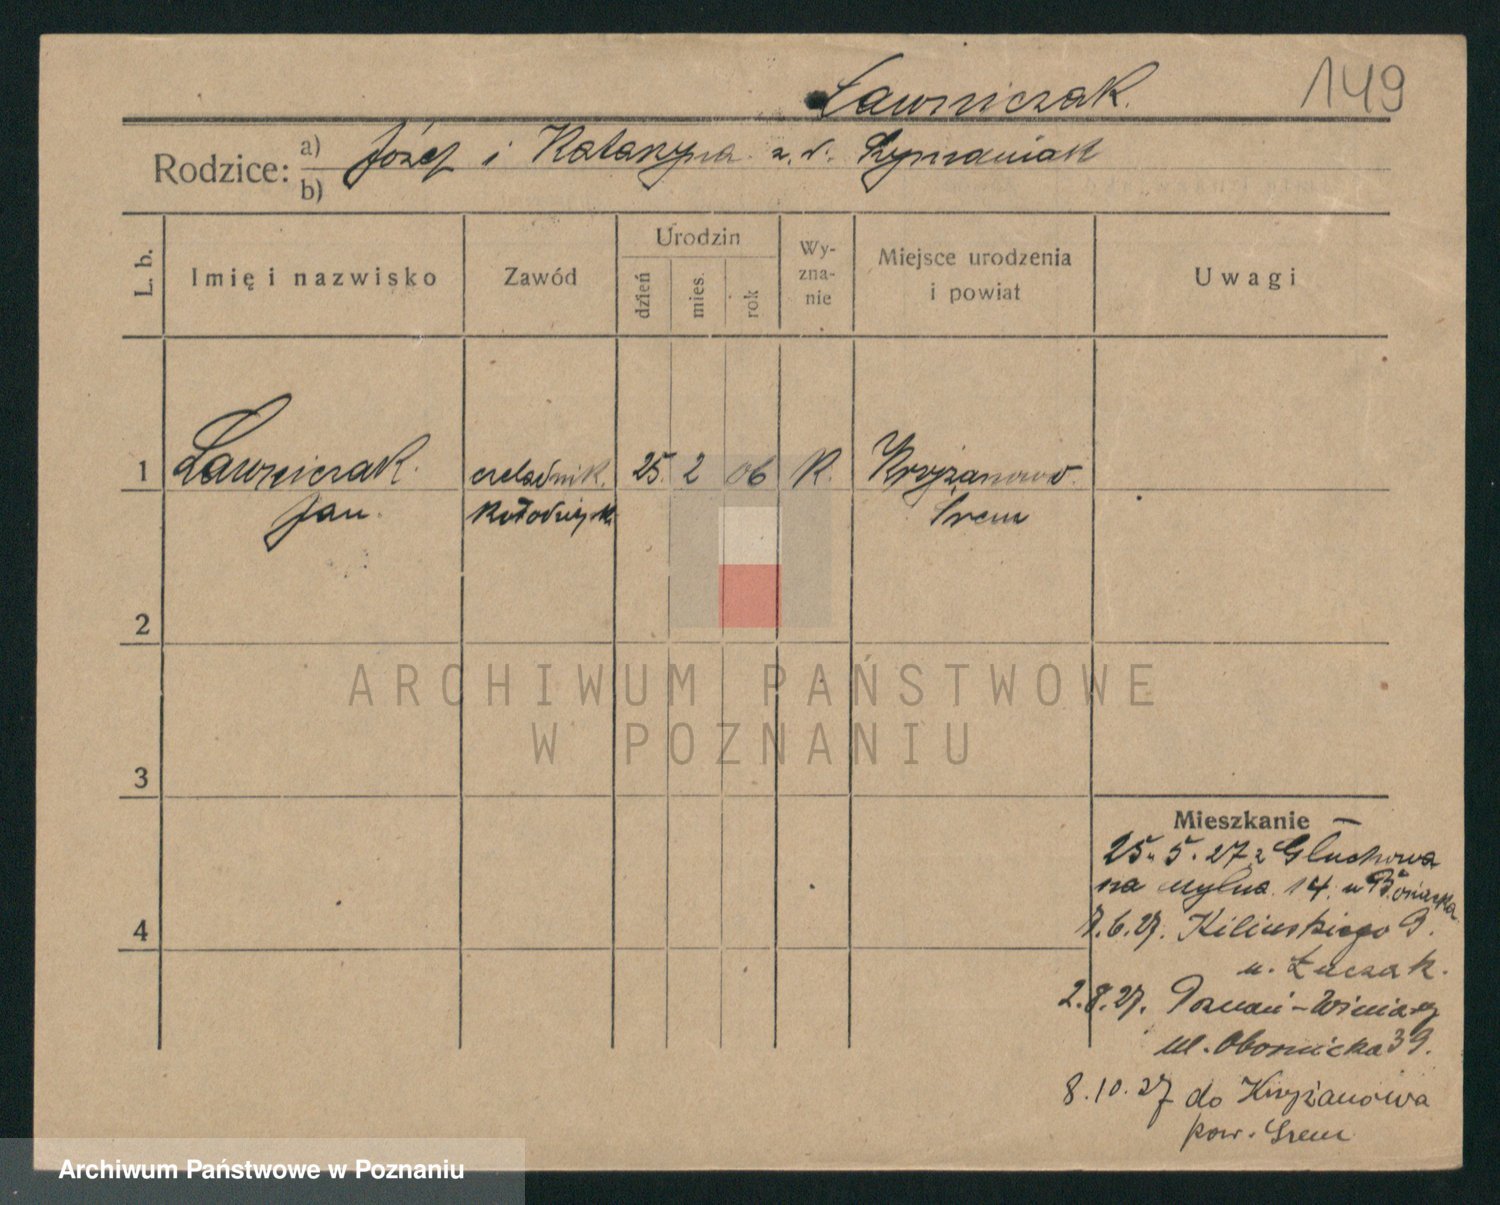 149
Ławniczak.
Rodzice: a) Józef i Katarzyna z. d. Szymaniak
b)
L. b.
Imię i nazwisko
Zawód
Urodzin
dzień
mies.
rok
Wy-
zna-
nie
Miejsce urodzenia
i powiat
Uwagi
1 Ławniczak. czeladnik. 25. 2 06 K. Krzyżanowo
Jan. kołodziejsk. Śrem
2
3
4
Mieszkanie
25. 5. 27 z Głuchowa
na Mylna 14. u
7.6.27. Kilińskiego 9.
u. Łuczak.
2.8.27. Poznań-Winiary
ul. Obornicka 39.
8.10.27 do Krzyżanowa
pow. Śrem
ARCHIWUM PAŃSTWOWE
W POZNANIU
Archiwum Państwowe w Poznaniu